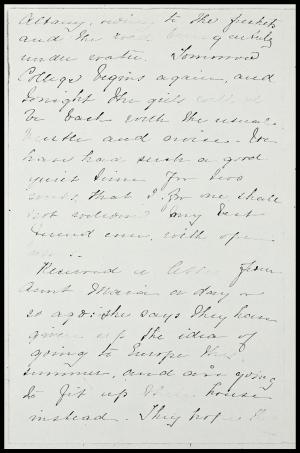 Albany, owing to the freshets
and the road being quite
under water. Tomorrow
College begins again, and
tonight the girls will all
be back with the usual
bustle and noise. We
have had such a good
quiet time for two
weeks, that I for one shall
not welcome my best
friend even, with open
arms.
Received a letter from
Aunt Maria a day or
so ago: she says they have
given up the idea of
going to Europe this
summer, and are going
to fit up their house
instead. They hope